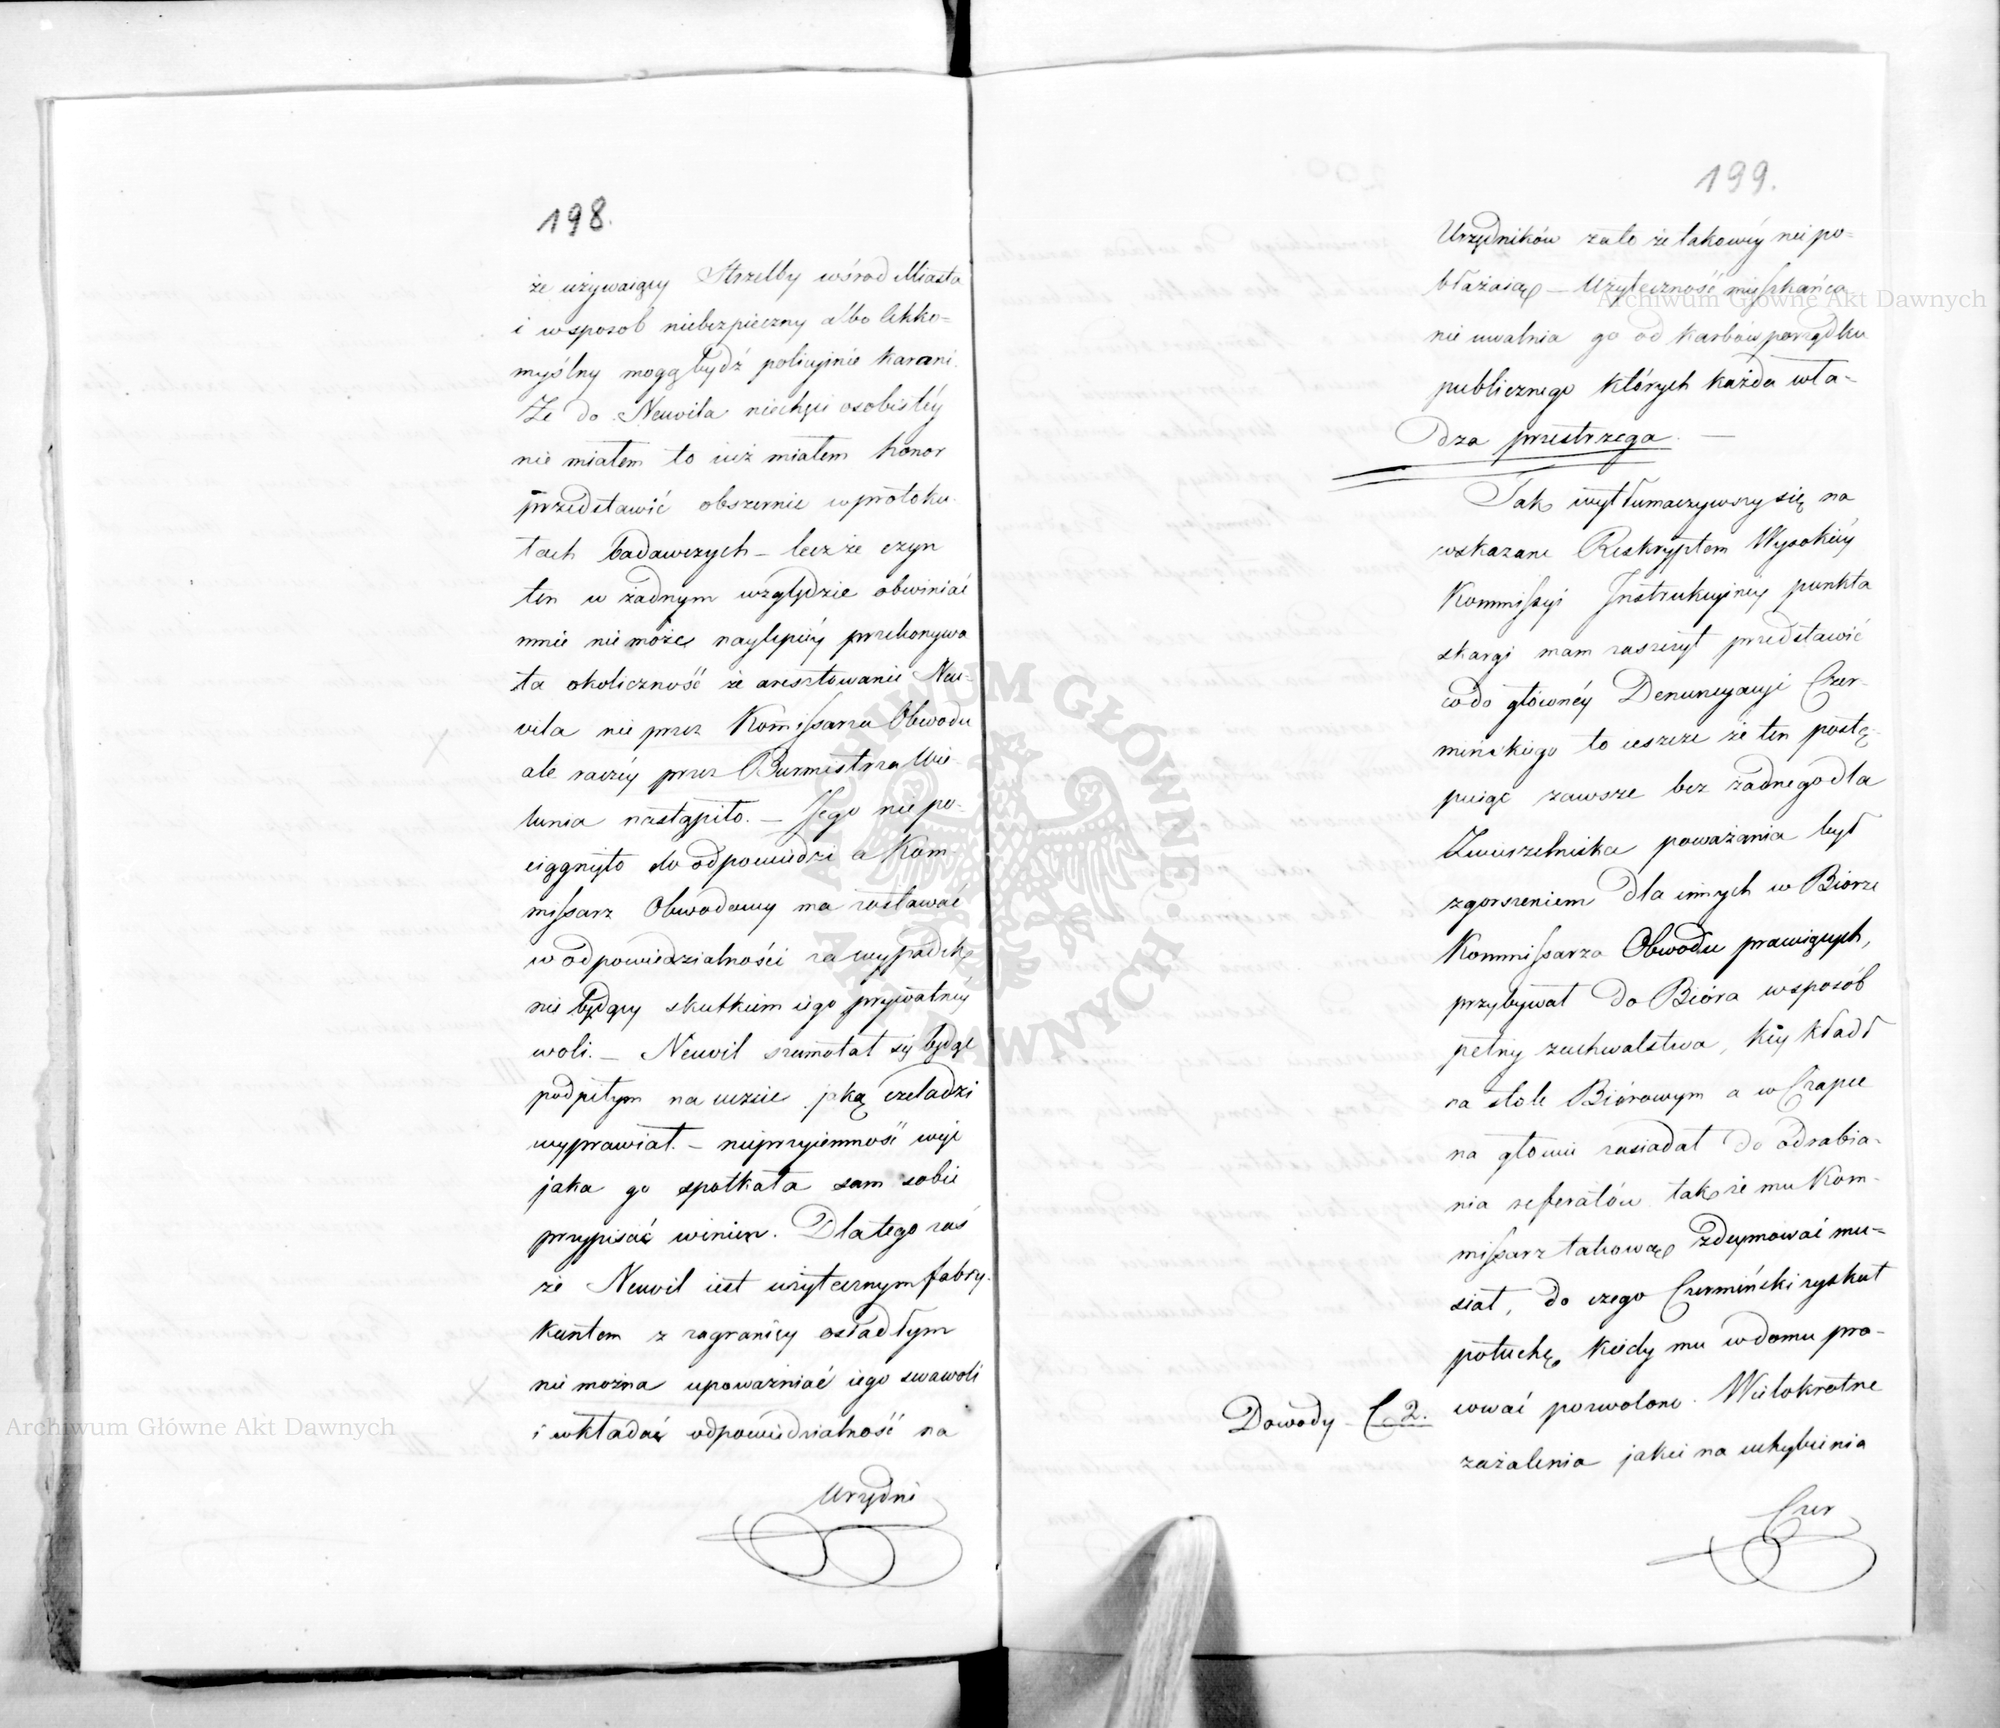 198.
że używaiący Strzelby wśrod Miasta
i w sposob niebezpieczny albo lekko=
myślny mogą bydź policyinie karani.
Że do Neuvila niechęci osobistéy
nie miałem to iuż miałem honor
przedstawić obszernie w protoku-
łach badawczych – lecz że czyn
ten w żadnym względzie obwiniać
mnie nie może naylepiéy przekonywa
ta okoliczność że aresztowanie Neu-
vila nie przez Kommissarza Obwodu
ale raczéy przez Burmistrza Wie-
lunia nastąpiło. – Jego nie po-
ciągnięto do odpowiedzi a Kom-
missarz Obwodowy ma zostawać
w odpowiedzialności za wypadek
nie będący skutkiem iego prywatnéy
woli. – Neuvil szamotał się będąc
podpitym na uczcie jaką czeladzi
wyprawiał. – nieprzyiemność więc
jaka go spotkała sam sobie
przypisać winien. Dlatego zaś
że Neuvil iest użytecznym fabry-
kantem z zagranicy osiadłym
nie można upoważniać iego swawoli
i wkładać odpowiedzialność na
Urzędni
199.
Urzędników zato że takowéy nie po-
błażaią – Użyteczność mieszkańca
nie uwalnia go od karbów porządku
publicznego których każda wła-
dza przestrzega. –
Tak wytłumaczywszy się na
wskazane Reskryptem Wysokiéy
Kommissyi Instrukcyinéy punkta
skargi mam zaszczyt przedstawić
co do głównéy Denuncyacyi Czer-
mińskiego to ieszcze że ten postę-
puiąc zawsze bez żadnego dla
Zwierzchnika poważania był
zgorszeniem dla innych w Biórze
Kommissarza Obwodu pracuiących,
przybywał do Bióra w sposób
pełny zuchwalstwa, kiy kładł
na stole Biórowym a w Czapce
na głowie zasiadał do odrabia-
nia referatów tak że mu Kom-
missarz takową zdeymować mu-
siał, do czego Czermiński zyskał
potuchę kiedy mu w domu pra-
cować pozwolono. Wielokrotne
Dowody C 2.
zażalenia jakie na uchybienia
Czer
Archiwum Główne Akt Dawnych
Archiwum Główne Akt Dawnych
ARCHIWUM GŁÓWNE AKT DAWNYCH